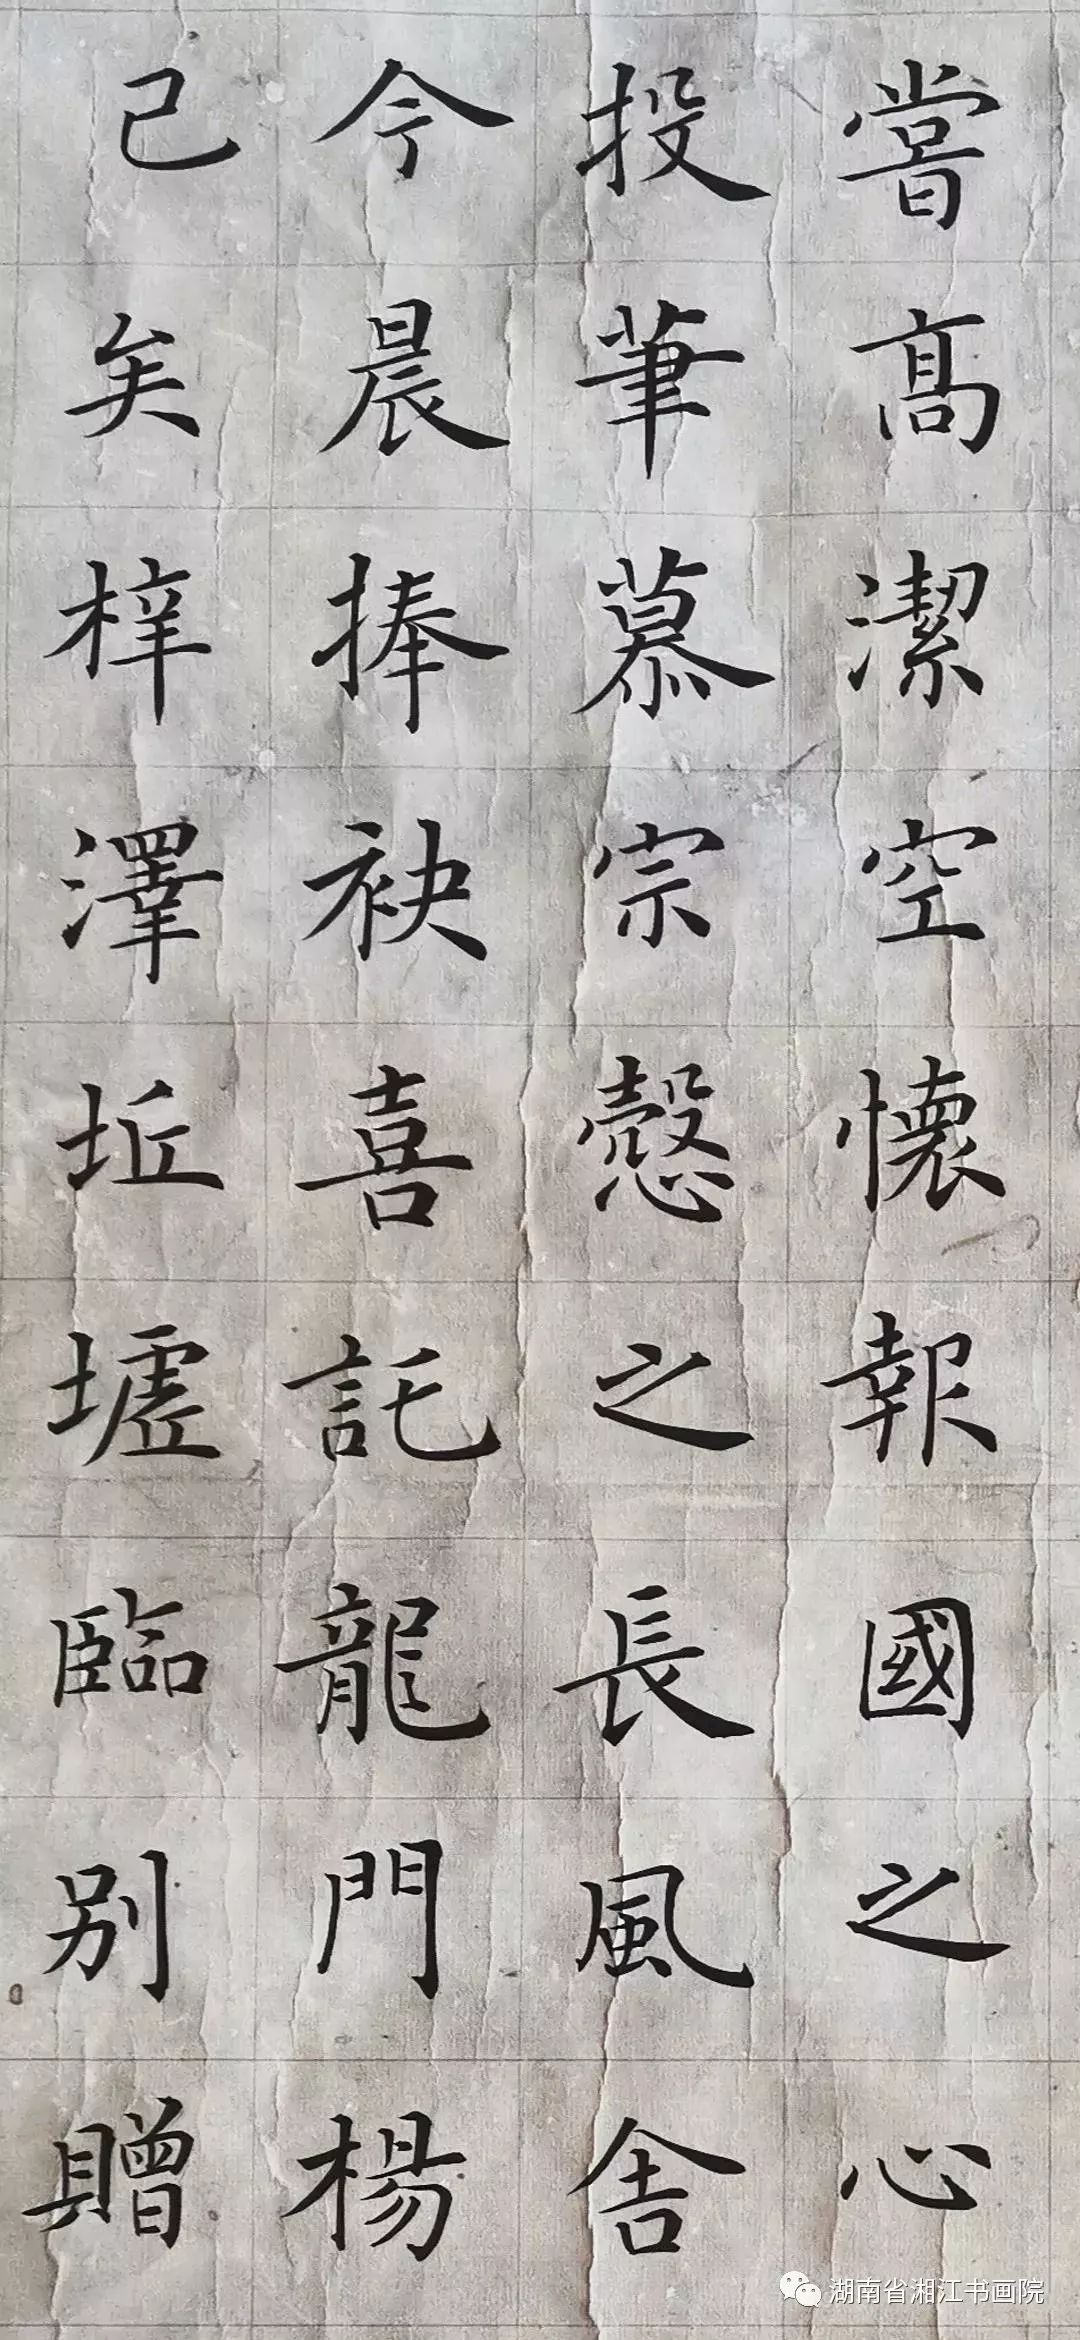 嘗高潔空懷報國之心
投筆慕宗慤之長風舍
今晨捧袂喜託龍門楊
已矣梓澤丘墟臨別贈
湖南省湘江书画院